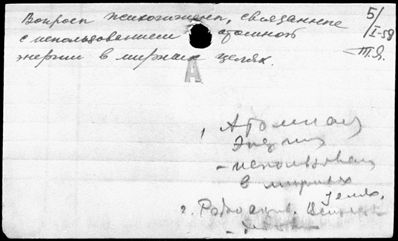 Вопросы психогигиены, связанные
с использованием атомной
энергии в мирных целях.
5/I-59
Т.Я.
А
Атомная
Энергия
- использован
в мирных
целях